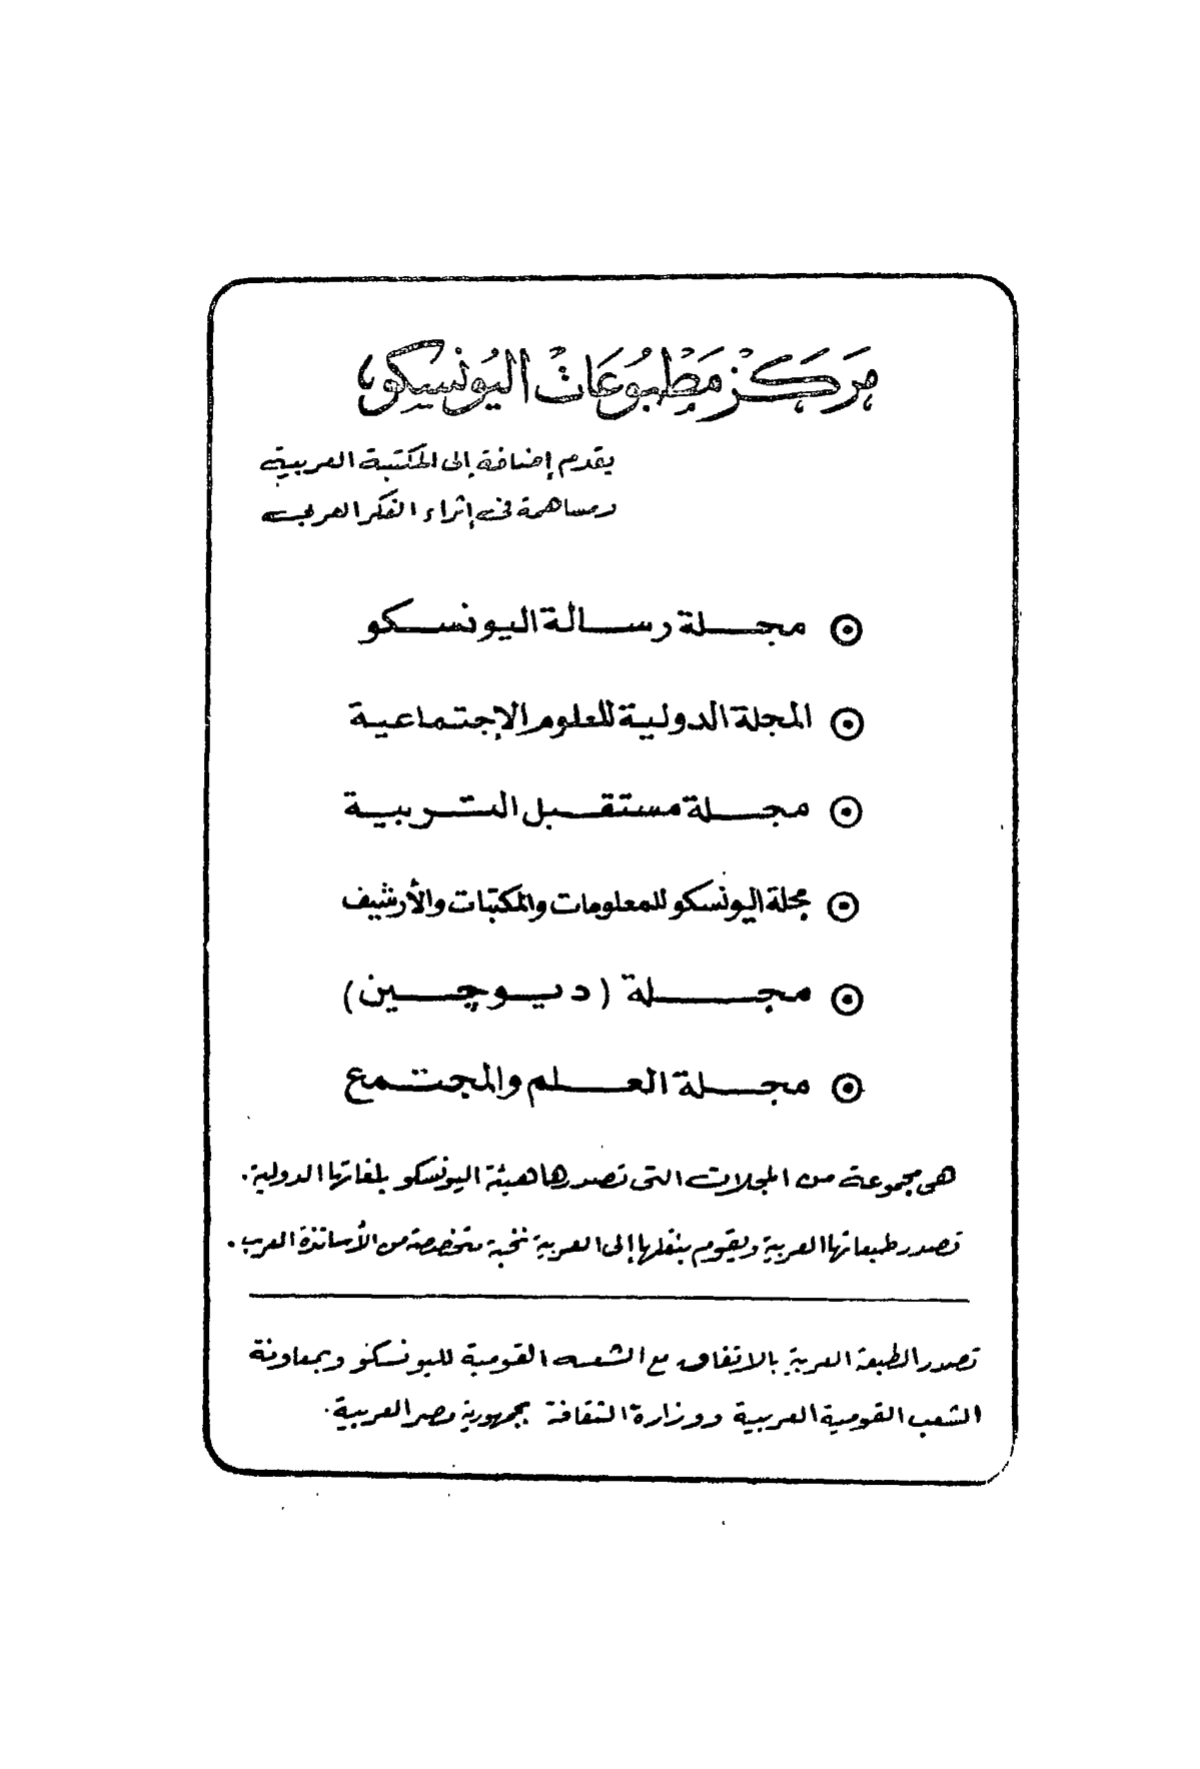 مركز مطبوعات اليونسكو
يقدم إضافة إلى المكتبة العربية
ومساهمة في إثراء الفكر العربي
مجلة رسالة اليونسكو
المجلة الدولية للعلوم الإجتماعية
مجلة مستقبل التربية
مجلة اليونسكو للمعلومات والمكتبات والأرشيف
مجلة (ديوچين)
مجلة العلم والمجتمع
هى مجموعة من المجلات التى تصدرها هيئة اليونسكو بلغاتها الدولية.
تصدر طبعاتها العربية ويقوم بنقلها إلى العربية نخبة متخصصة من الأساتذة العرب.
تصدر الطبعة العربية بالاتفاق مع الشعبة القومية لليونسكو وبمعاونة
الشعب القومية العربية ووزارة الثقافة بجمهورية مصر العربية.